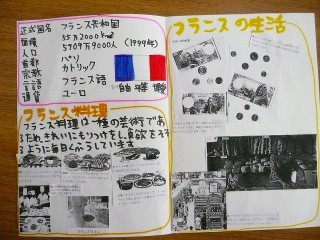 正式国名 フランス共和国
面積 55万2000km²
人口 5909万9000人 (1999年)
首都 パリ
宗教 カトリック
言語 フランス語
通貨 ユーロ
自由
フランス料理
フランス料理は一種の芸術であ
るため、きれいにもりつけをし、食欲をそそ
るように毎日くふうしています
フランスの生活